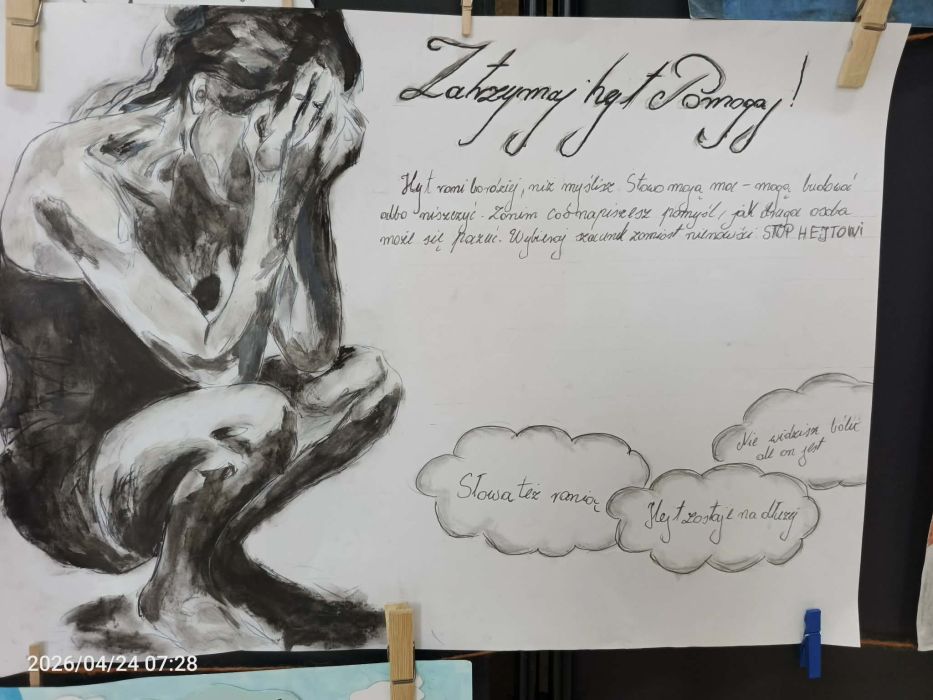 Zatrzymaj hejt Pomagaj!
Hejt rani bardziej, niż myślisz. Słowa mają moc - mogą budować
albo niszczyć. Zanim coś napiszesz pomyśl, jak druga osoba
może się poczuć. Wybieraj szacunek zamiast nienawiści STOP HEJTOWI
Nie widzisz bólu
ale on jest
Słowa też ranią
Hejt zostaje na dłużej
2026/04/24 07:28